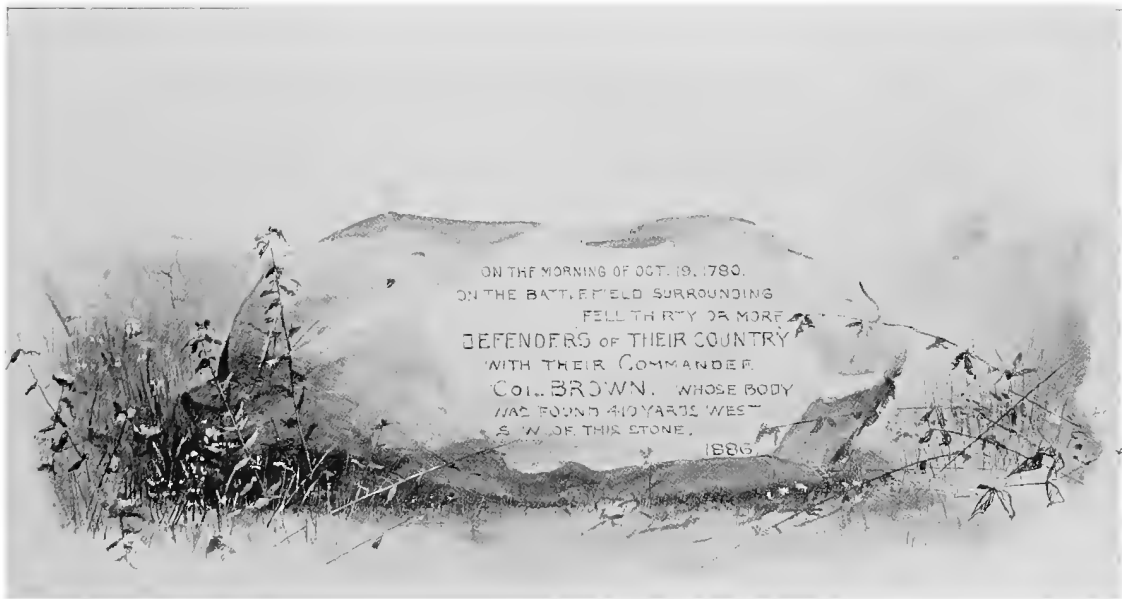 ON THE MORNING OF OCT. 19, 1780.
ON THE BATTLEFIELD SURROUNDING
FELL THIRTY OR MORE
DEFENDERS OF THEIR COUNTRY
WITH THEIR COMMANDER
COL. BROWN. WHOSE BODY
WAS FOUND 410 YARDS WEST
S W. OF THIS STONE.
1886